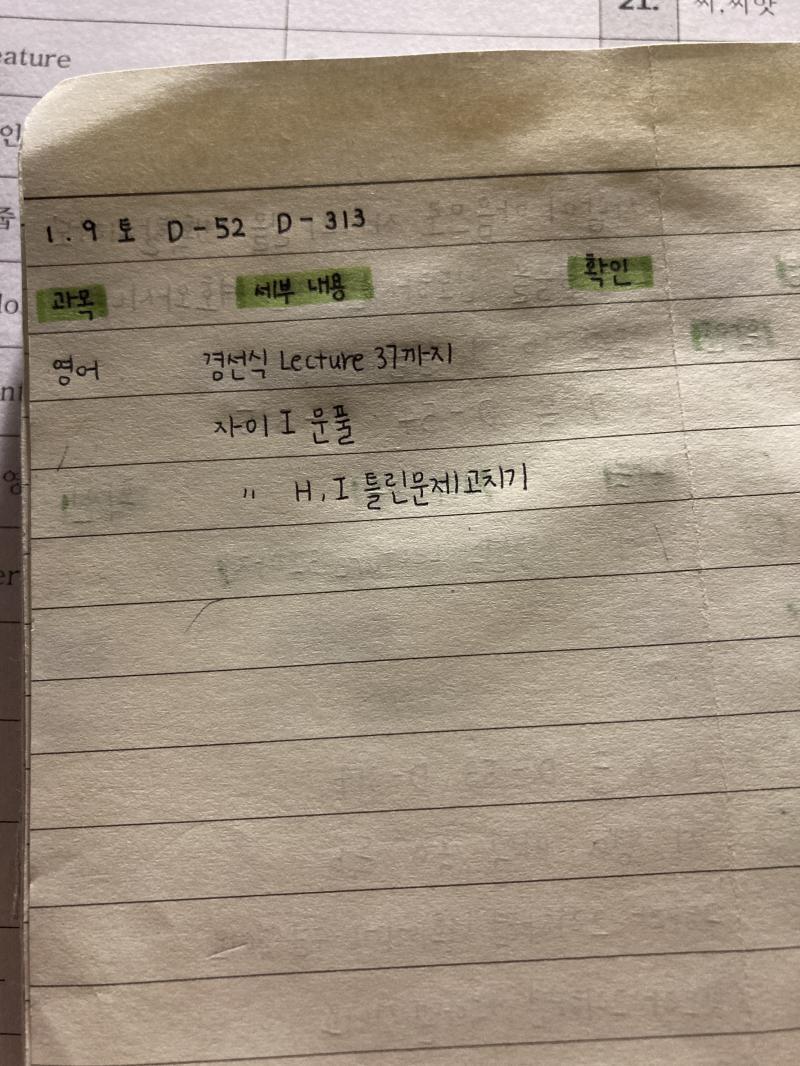 21. 씨.씨앗
eature
인
줍
1.9 토 D-52 D-313
과목 세부 내용 확인
영어 경선식 Lecture 37까지
자이 I 문풀
〃 H, I 틀린문제고치기
er